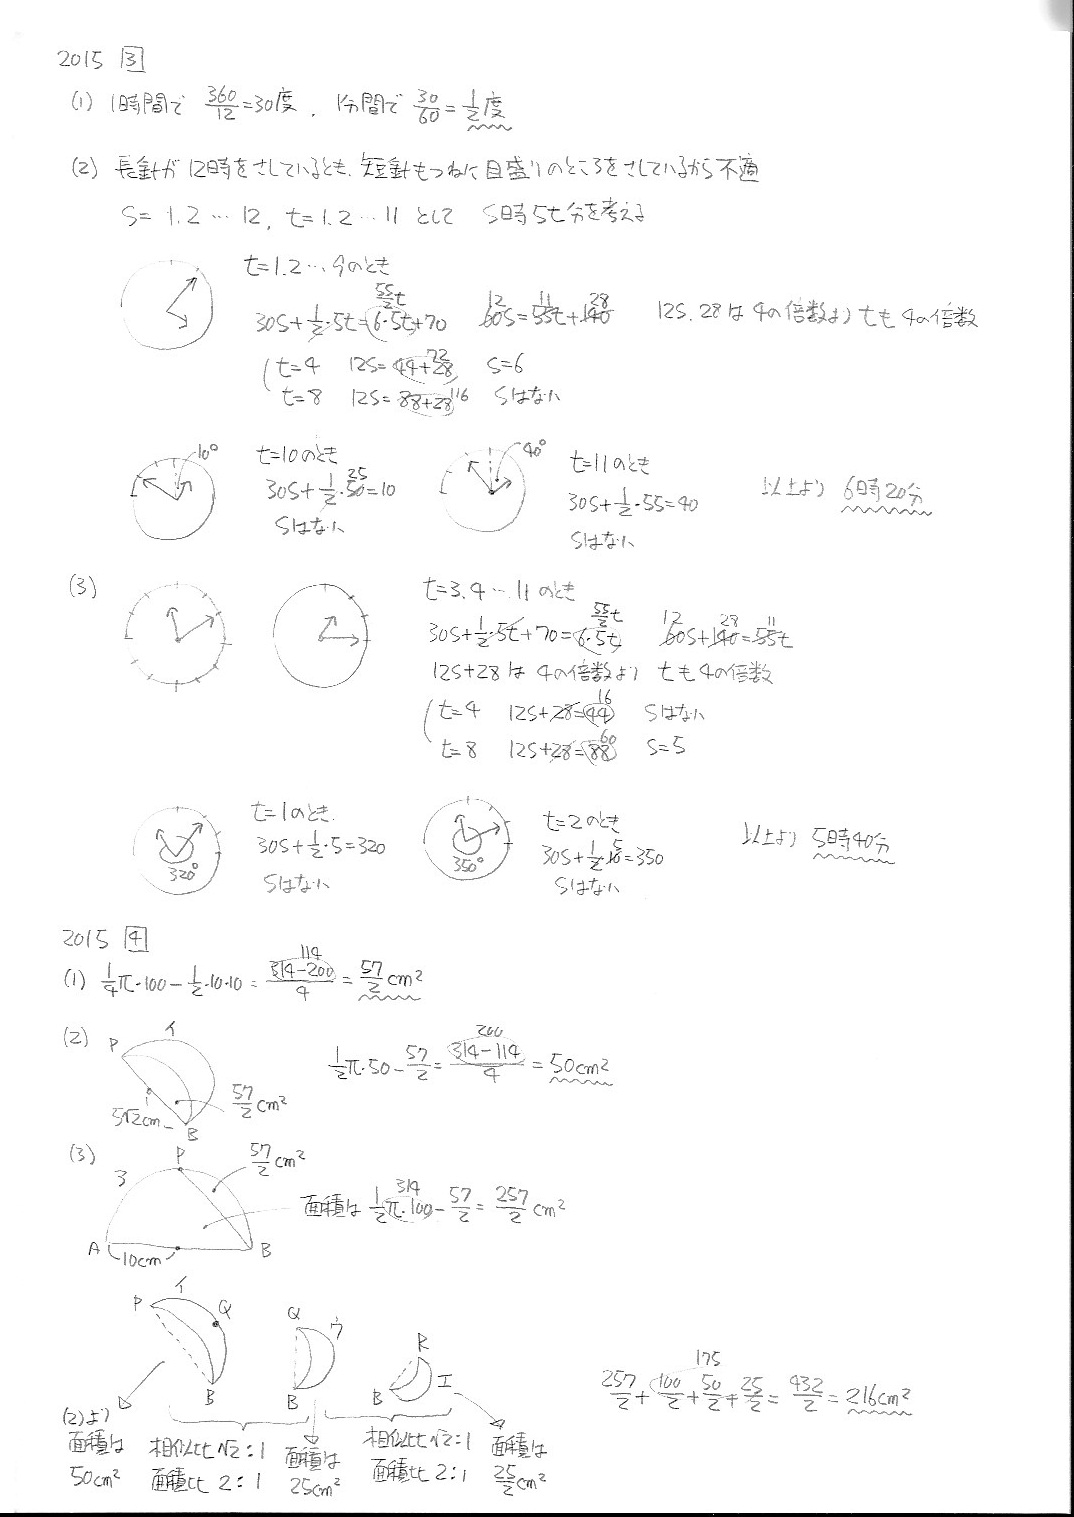 2015 3
(1) 1時間で 360/12=30度, 1分間で 30/60=1/2度
(2) 長針が12時をさしているとき、短針もつねに目盛りのところをさしているから不適
s=1.2…12, t=1.2…11 として s時5t分を考える
t=1.2…9のとき
55/2t
30s+1/2・5t=6・5t+70 12 60s=11 55t+28 140 12s.28は4の倍数よりtも4の倍数
t=4 12s=44+28 72 s=6
t=8 12s=88+28 116 sはない
10° t=10のとき
30s+1/2・50 25=10
sはない
40° t=11のとき
30s+1/2・55=40
sはない
以上より 6時20分
(3) t=3.4…11のとき
55/2t
30s+1/2・5t+70=6・5t 12 60s+28 140=11 55t
12s+28は4の倍数よりtも4の倍数
t=4 12s+28=44 16 sはない
t=8 12s+28=88 60 s=5
320° t=1のとき
30s+1/2・5=320
sはない
350° t=2のとき
30s+1/2・10 5=350
sはない
以上より 5時40分
2015 4
(1) 1/4π・100-1/2・10・10=314-200/4 114=57/2cm²
(2) P イ B 5√2cm 57/2cm²
1/2π・50-57/2=314-114/4 200=50cm²
(3) P 3 A B 10cm 57/2cm²
面積は 1/2π・100 314-57/2=257/2cm²
P イ Q B
Q ウ B
R エ B
(2)より 面積は 50cm²
相似比√2:1
面積比2:1
面積は 25cm²
相似比√2:1
面積比2:1
面積は 25/2cm²
175
257/2+100/2+50/2+25/2=432/2=216cm²